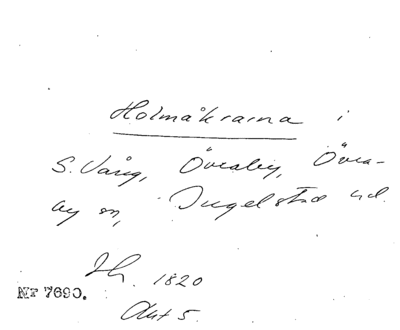 Holmåkrarna i
S. Vång, Öraby, Öra-
by sn, Ingelstad hd.
Sk. 1820
NF 7690.
Akt 5.